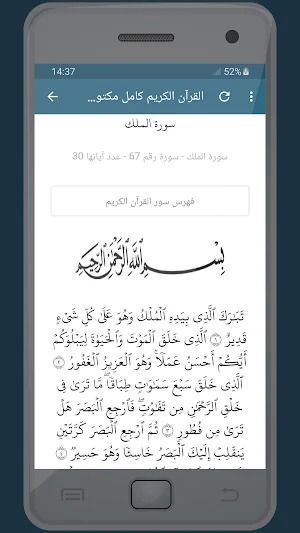 14:37
52%
القرآن الكريم كامل مكتو...
سورة الملك
سورة الملك - سورة رقم 67 - عدد آياتها 30
فهرس سور القرآن الكريم
بِسْمِ اللَّهِ الرَّحْمَٰنِ الرَّحِيمِ
تَبَٰرَكَ ٱلَّذِى بِيَدِهِ ٱلْمُلْكُ وَهُوَ عَلَىٰ كُلِّ شَىْءٍ
قَدِيرٌ ﴿١﴾ ٱلَّذِى خَلَقَ ٱلْمَوْتَ وَٱلْحَيَوٰةَ لِيَبْلُوَكُمْ
أَيُّكُمْ أَحْسَنُ عَمَلًا ۚ وَهُوَ ٱلْعَزِيزُ ٱلْغَفُورُ ﴿٢﴾
ٱلَّذِى خَلَقَ سَبْعَ سَمَٰوَٰتٍ طِبَاقًا ۖ مَّا تَرَىٰ فِى
خَلْقِ ٱلرَّحْمَٰنِ مِن تَفَٰوُتٍ ۖ فَٱرْجِعِ ٱلْبَصَرَ هَلْ
تَرَىٰ مِن فُطُورٍ ﴿٣﴾ ثُمَّ ٱرْجِعِ ٱلْبَصَرَ كَرَّتَيْنِ
يَنقَلِبْ إِلَيْكَ ٱلْبَصَرُ خَاسِئًا وَهُوَ حَسِيرٌ ﴿٤﴾